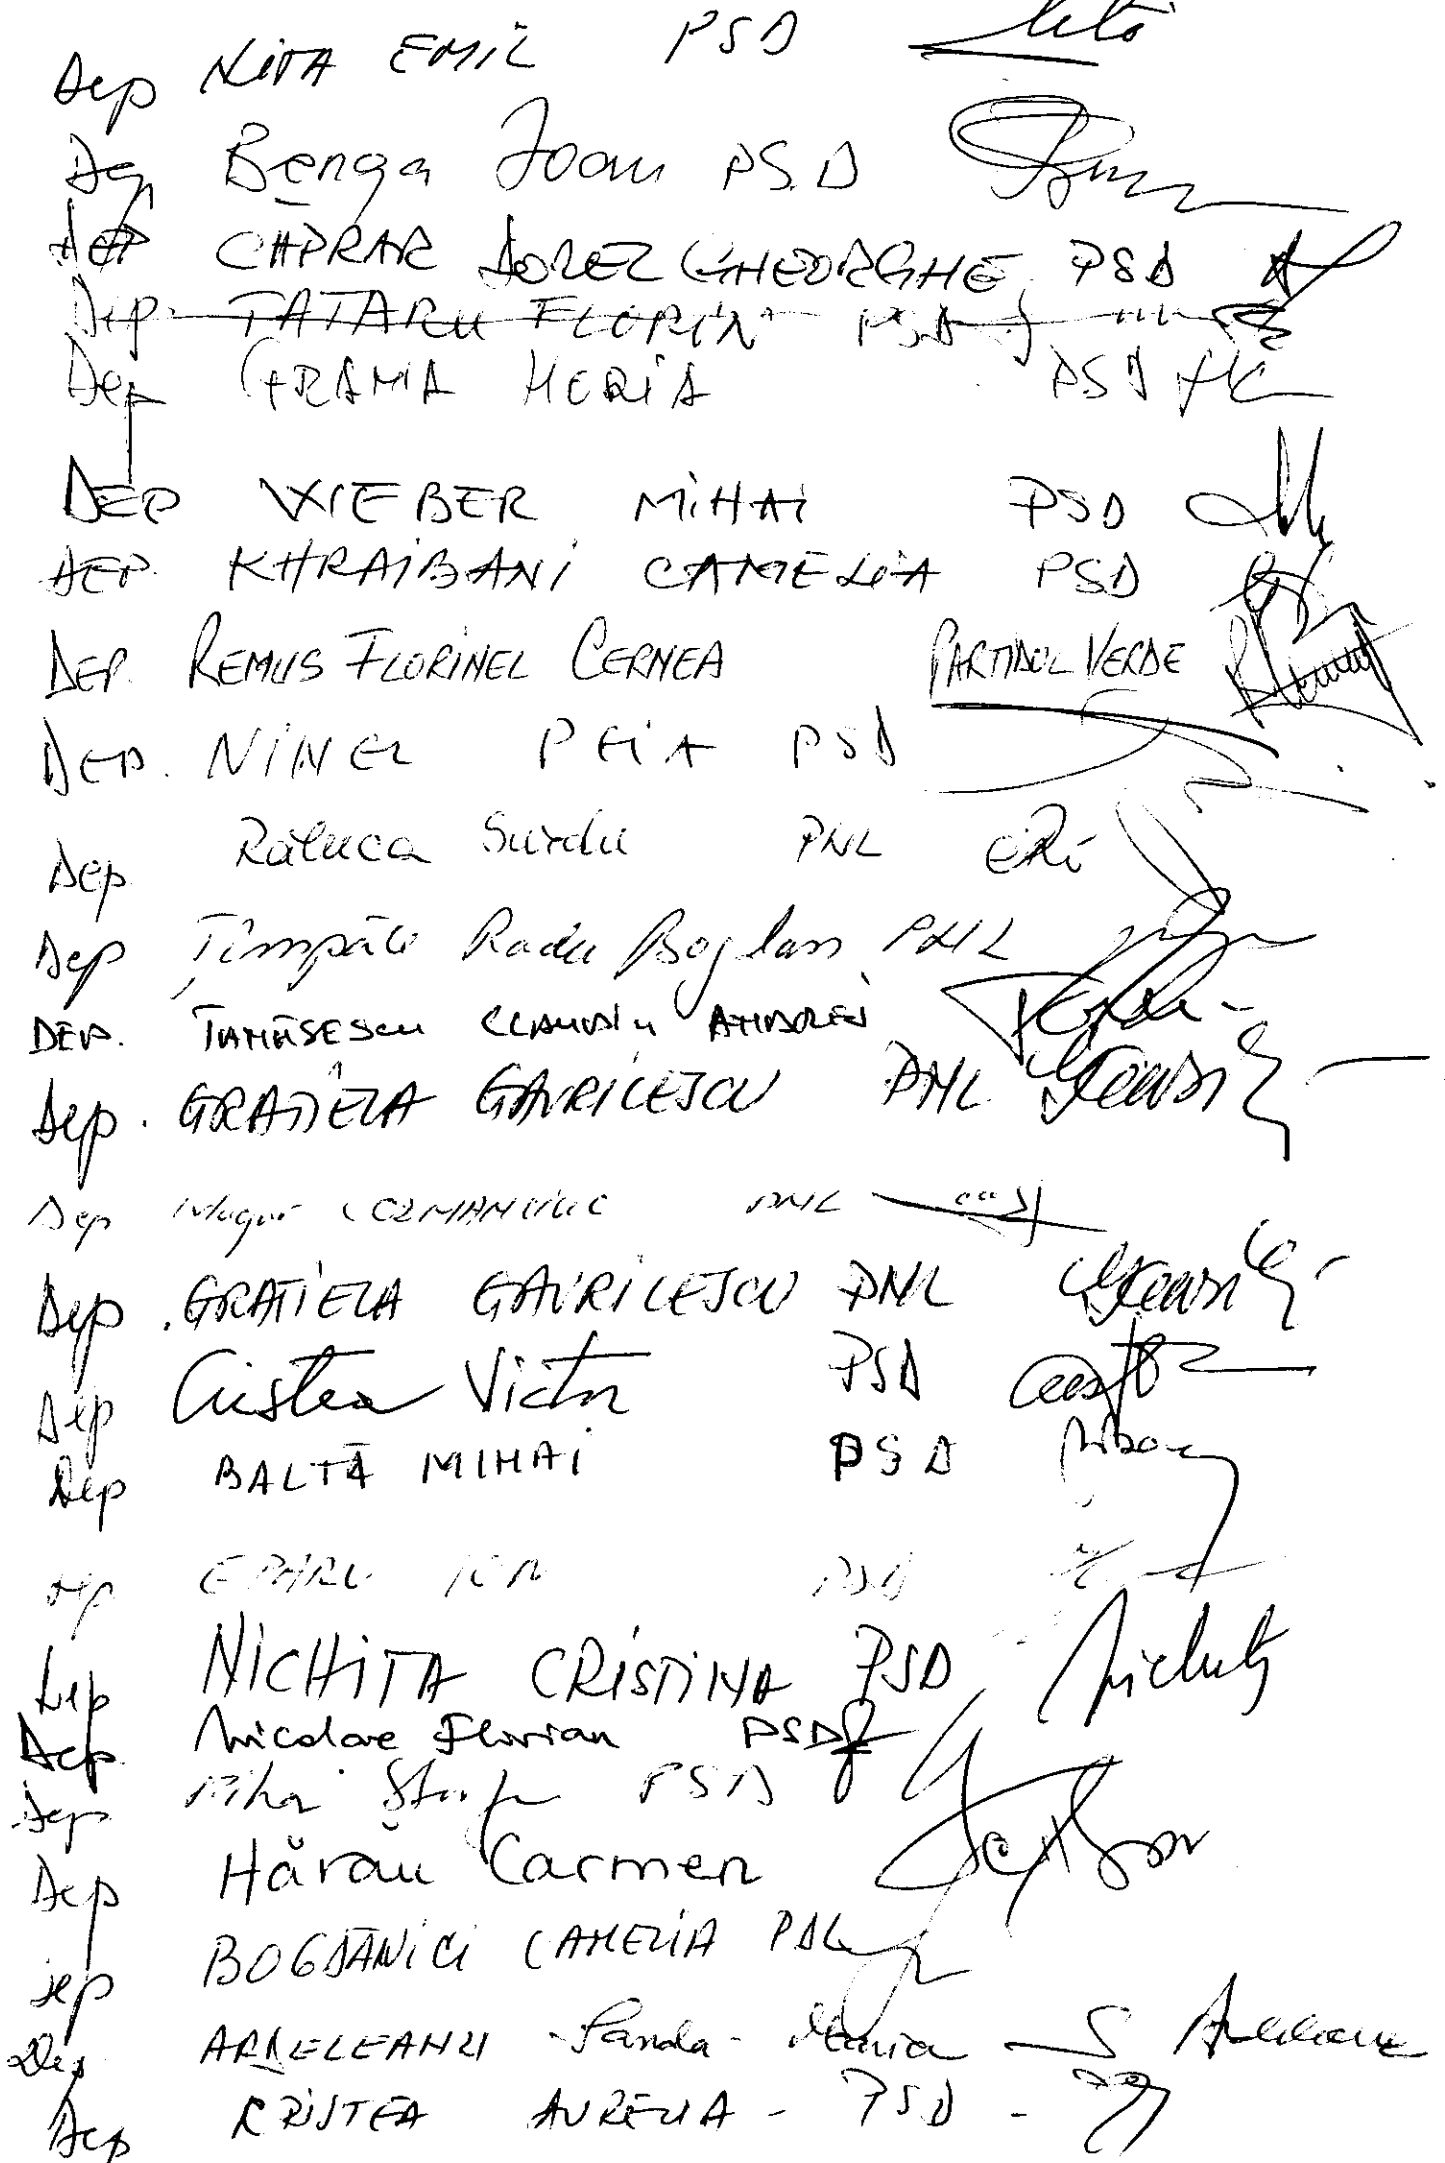 Dep NITA EMIL PSD
Dep Benga Ioan PSD
DEP CĂPRAR DOREL GHEORGHE PSD
Dep. TATARU FLORIN PSD
Dep GRAMA HORIA PSD
DEP WEBER MIHAI PSD
DEP. KHRAIBANI CAMELIA PSD
DEP. REMUS FLORINEL CERNEA PARTIDUL VERDE
DEP. NINEL PEIA PSD
Dep Raluca Surdu PNL
Dep Țîmpău Radu Bogdan PNL
DEP. TĂNĂSESCU CLAUDIU ANDREI
Dep. GRATIELA GAVRILESCU PNL
Dep COZMANCIUC PNL
Dep. GRATIELA GAVRILESCU PNL
Dep Cristea Victor PSD
Dep BALTĂ MIHAI PSD
Dep EPARU ION PSD
Dep NICHITA CRISTINA PSD
Dep Nicolae Florian PSD
Dep PSD
Dep Hărău Carmen
Dep BOGDĂNICI CAMELIA PDL
Dep ARDELEANU Sanda-Maria
Dep CRISTEA AURELIA - PSD -